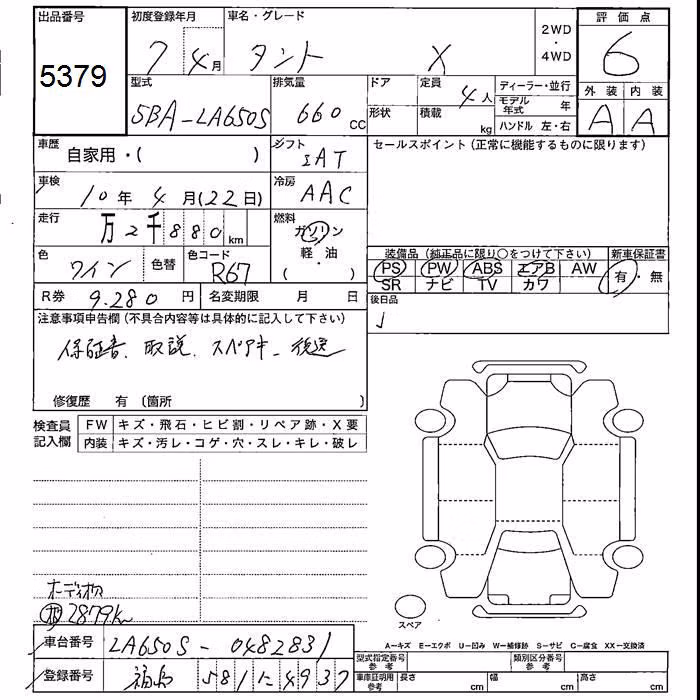 出品番号
5379
初度登録年月
7年4月
車名・グレード
タント X
2WD
・
4WD
評価点
6
型式
5BA-LA650S
排気量
660 cc
ドア
形状
定員
4人
積載
kg
ディーラー・並行
モデル年式 年
ハンドル 左・右
外装 内装
A A
車歴
自家用・( )
シフト
IAT
セールスポイント(正常に機能するものに限ります)
車検
10年4月(22日)
冷房
AAC
走行
万2千880km
燃料
ガソリン
軽・油
( )
色
ワイン
色替
色コード
R67
装備品(純正品に限り○をつけて下さい)
PS PW ABS エアB AW
SR ナビ TV カワ
新車保証書
有・無
R券 9.280円
名変期限 月 日
後日品
注意事項申告欄(不具合内容等は具体的に記入して下さい)
保証書、取説、スペアキー後送
修復歴 有 〔箇所 〕
検査員
記入欄
FW キズ・飛石・ヒビ割・リペア跡・X要
内装 キズ・汚レ・コゲ・穴・スレ・キレ・破レ
2879km
スペア
車台番号 LA650S-0482831
A−キズ E−エクボ U−凹み W−補修跡 S−サビ C−腐食 XX−交換済
型式指定番号
参考
類別区分番号
参考
登録番号 福島 581 に 4937
車庫証明用
参考
長さ cm 幅 cm 高さ cm